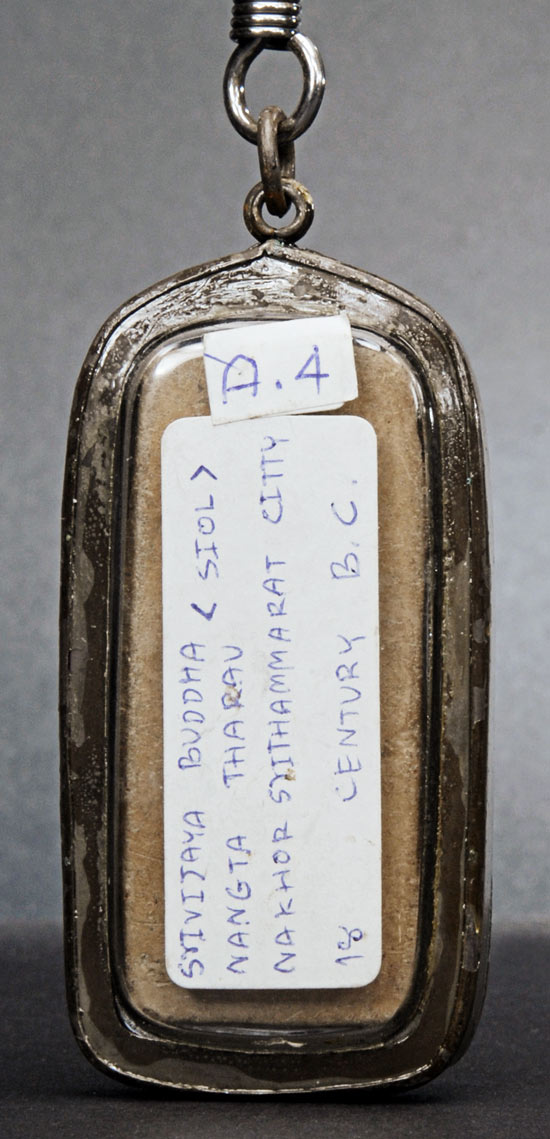 D.4
SRIVIJAYA BUDDHA < SIOL>
NANGTA THARAU
NAKHOR SRITHAMMARAT CITTY
18 CENTURY B.C.